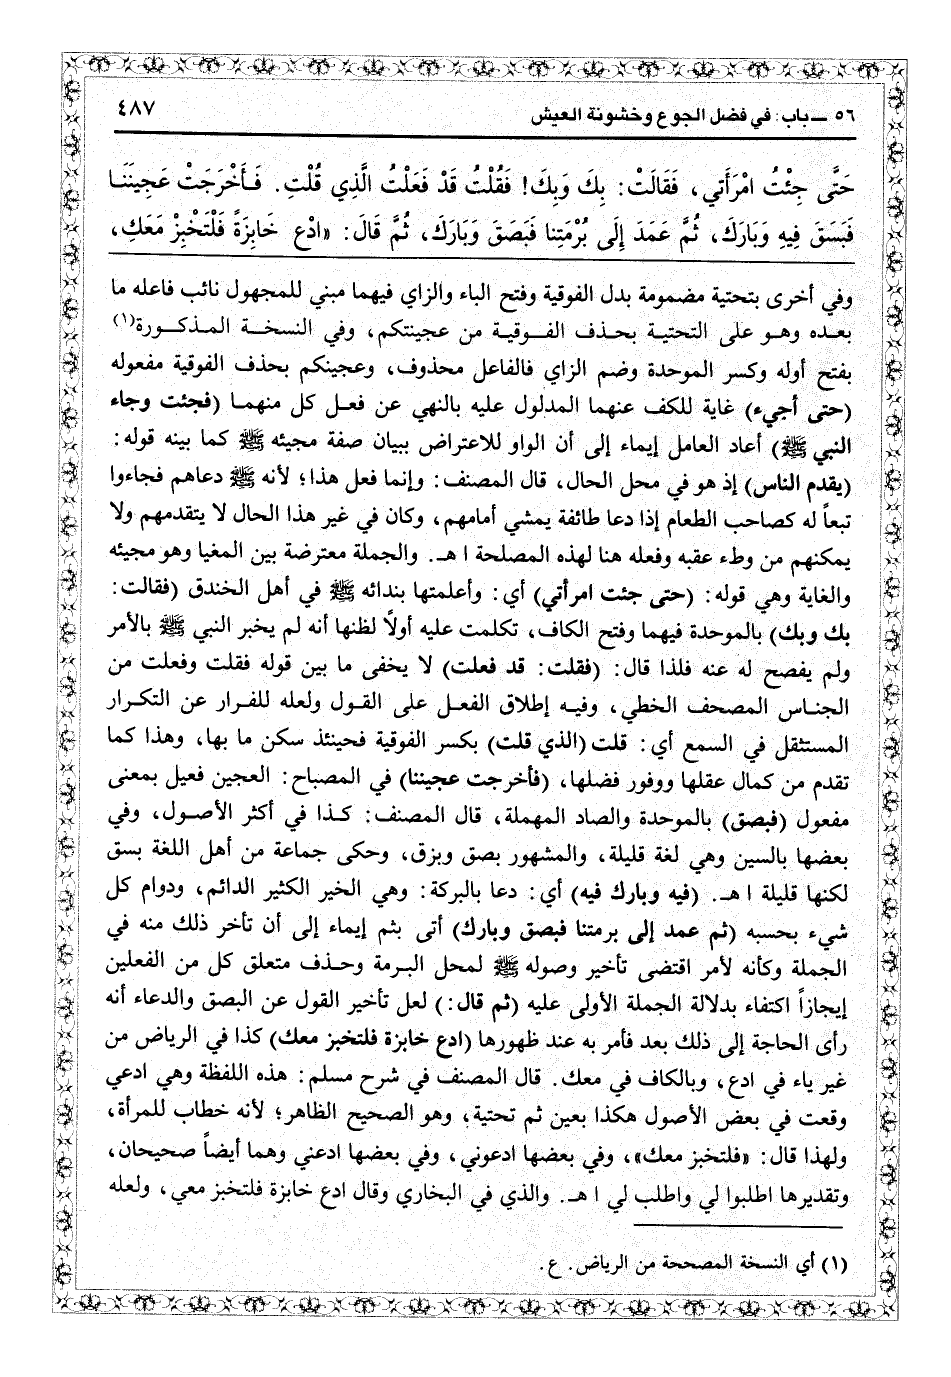 ٥٦ ــ باب: في فضل الجوع وخشونة العيش
٤٨٧
حَتَّى جِئْتُ امْرَأَتي، فَقَالَتْ: بِكَ وَبِكَ! فَقُلْتُ قَدْ فَعَلْتُ الَّذِي قُلْتِ. فَأَخْرَجَتْ عَجِينَنَا
فَبَسَقَ فِيهِ وَبَارَكَ، ثُمَّ عَمَدَ إِلَى بُرْمَتِنا فَبَصَقَ وَبَارَكَ، ثُمَّ قَالَ: «ادْعِ خَابِزَةً فَلْتَخْبِزْ مَعَكِ،
وفي أخرى بتحتية مضمومة بدل الفوقية وفتح الباء والزاي فيهما مبني للمجهول نائب فاعله ما
بعده وهو على التحتية بحذف الفوقية من عجينتكم، وفي النسخة المذكورة(١)
بفتح أوله وكسر الموحدة وضم الزاي فالفاعل محذوف، وعجينكم بحذف الفوقية مفعوله
(حتى أجيء) غاية للكف عنهما المدلول عليه بالنهي عن فعل كل منهما (فجئت وجاء
النبي ﷺ) أعاد العامل إيماء إلى أن الواو للاعتراض ببيان صفة مجيئه ﷺ كما بينه قوله:
(يقدم الناس) إذ هو في محل الحال، قال المصنف: وإنما فعل هذا؛ لأنه ﷺ دعاهم فجاءوا
تبعاً له كصاحب الطعام إذا دعا طائفة يمشي أمامهم، وكان في غير هذا الحال لا يتقدمهم ولا
يمكنهم من وطء عقبه وفعله هنا لهذه المصلحة ا هـ. والجملة معترضة بين المغيا وهو مجيئه
والغاية وهي قوله: (حتى جئت امرأتي) أي: وأعلمتها بندائه ﷺ في أهل الخندق (فقالت:
بك وبك) بالموحدة فيهما وفتح الكاف، تكلمت عليه أولاً لظنها أنه لم يخبر النبي ﷺ بالأمر
ولم يفصح له عنه فلذا قال: (فقلت: قد فعلت) لا يخفى ما بين قوله فقلت وفعلت من
الجناس المصحف الخطي، وفيه إطلاق الفعل على القول ولعله للفرار عن التكرار
المستثقل في السمع أي: قلت (الذي قلت) بكسر الفوقية فحينئذ سكن ما بها، وهذا كما
تقدم من كمال عقلها ووفور فضلها، (فأخرجت عجيننا) في المصباح: العجين فعيل بمعنى
مفعول (فبصق) بالموحدة والصاد المهملة، قال المصنف: كذا في أكثر الأصول، وفي
بعضها بالسين وهي لغة قليلة، والمشهور بصق وبزق، وحكى جماعة من أهل اللغة بسق
لكنها قليلة ا هـ. (فيه وبارك فيه) أي: دعا بالبركة: وهي الخير الكثير الدائم، ودوام كل
شيء بحسبه (ثم عمد إلى برمتنا فبصق وبارك) أتى بثم إيماء إلى أن تأخر ذلك منه في
الجملة وكأنه لأمر اقتضى تأخير وصوله ﷺ لمحل البرمة وحذف متعلق كل من الفعلين
إيجازاً اكتفاء بدلالة الجملة الأولى عليه (ثم قال:) لعل تأخير القول عن البصق والدعاء أنه
رأى الحاجة إلى ذلك بعد فأمر به عند ظهورها (ادع خابزة فلتخبز معك) كذا في الرياض من
غير ياء في ادع، وبالكاف في معك. قال المصنف في شرح مسلم: هذه اللفظة وهي ادعي
وقعت في بعض الأصول هكذا بعين ثم تحتية، وهو الصحيح الظاهر؛ لأنه خطاب للمرأة،
ولهذا قال: «فلتخبز معك»، وفي بعضها ادعوني، وفي بعضها ادعني وهما أيضاً صحيحان،
وتقديرها اطلبوا لي واطلب لي ا هـ. والذي في البخاري وقال ادع خابزة فلتخبز معي، ولعله
(١) أي النسخة المصححة من الرياض. ع.